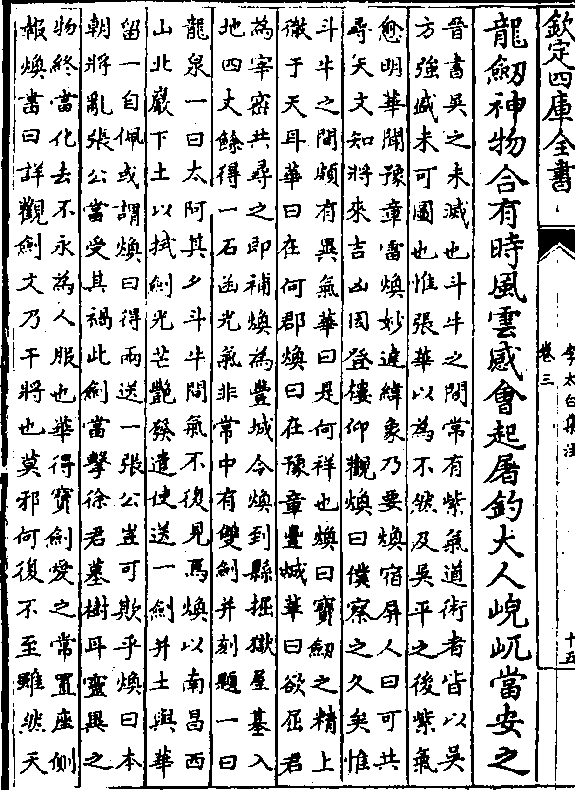 欽定四庫全書
李太白集注
卷三
十五
龍劒神物合有時風雲感會起屠釣大人𡸣屼當安之
晉書吳之未滅也斗牛之間常有紫氣道術者皆以吳
方強盛未可圖也惟張華以為不然及吳平之後紫氣
愈明華聞豫章雷煥妙達緯象乃要煥宿屏人曰可共
尋天文知將來吉凶因登樓仰觀煥曰僕察之久矣惟
斗牛之間頗有異氣華曰是何祥也煥曰寶劒之精上
徹于天耳華曰在何郡煥曰在豫章豐城華曰欲屈君
為宰密共尋之即補煥為豐城令煥到縣掘獄屋基入
地四丈餘得一石函光氣非常中有雙劍并刻題一曰
龍泉一曰太阿其夕斗牛間氣不復見焉煥以南昌西
山北巖下土以拭劍光芒艷發遣使送一劍并土與華
留一自佩或謂煥曰得兩送一張公豈可欺乎煥曰本
朝將亂張公當受其禍此劍當擊徐君墓樹耳靈異之
物終當化去不永為人服也華得寶劍愛之常置座側
報煥書曰詳觀劍文乃干將也莫邪何復不至雖然天